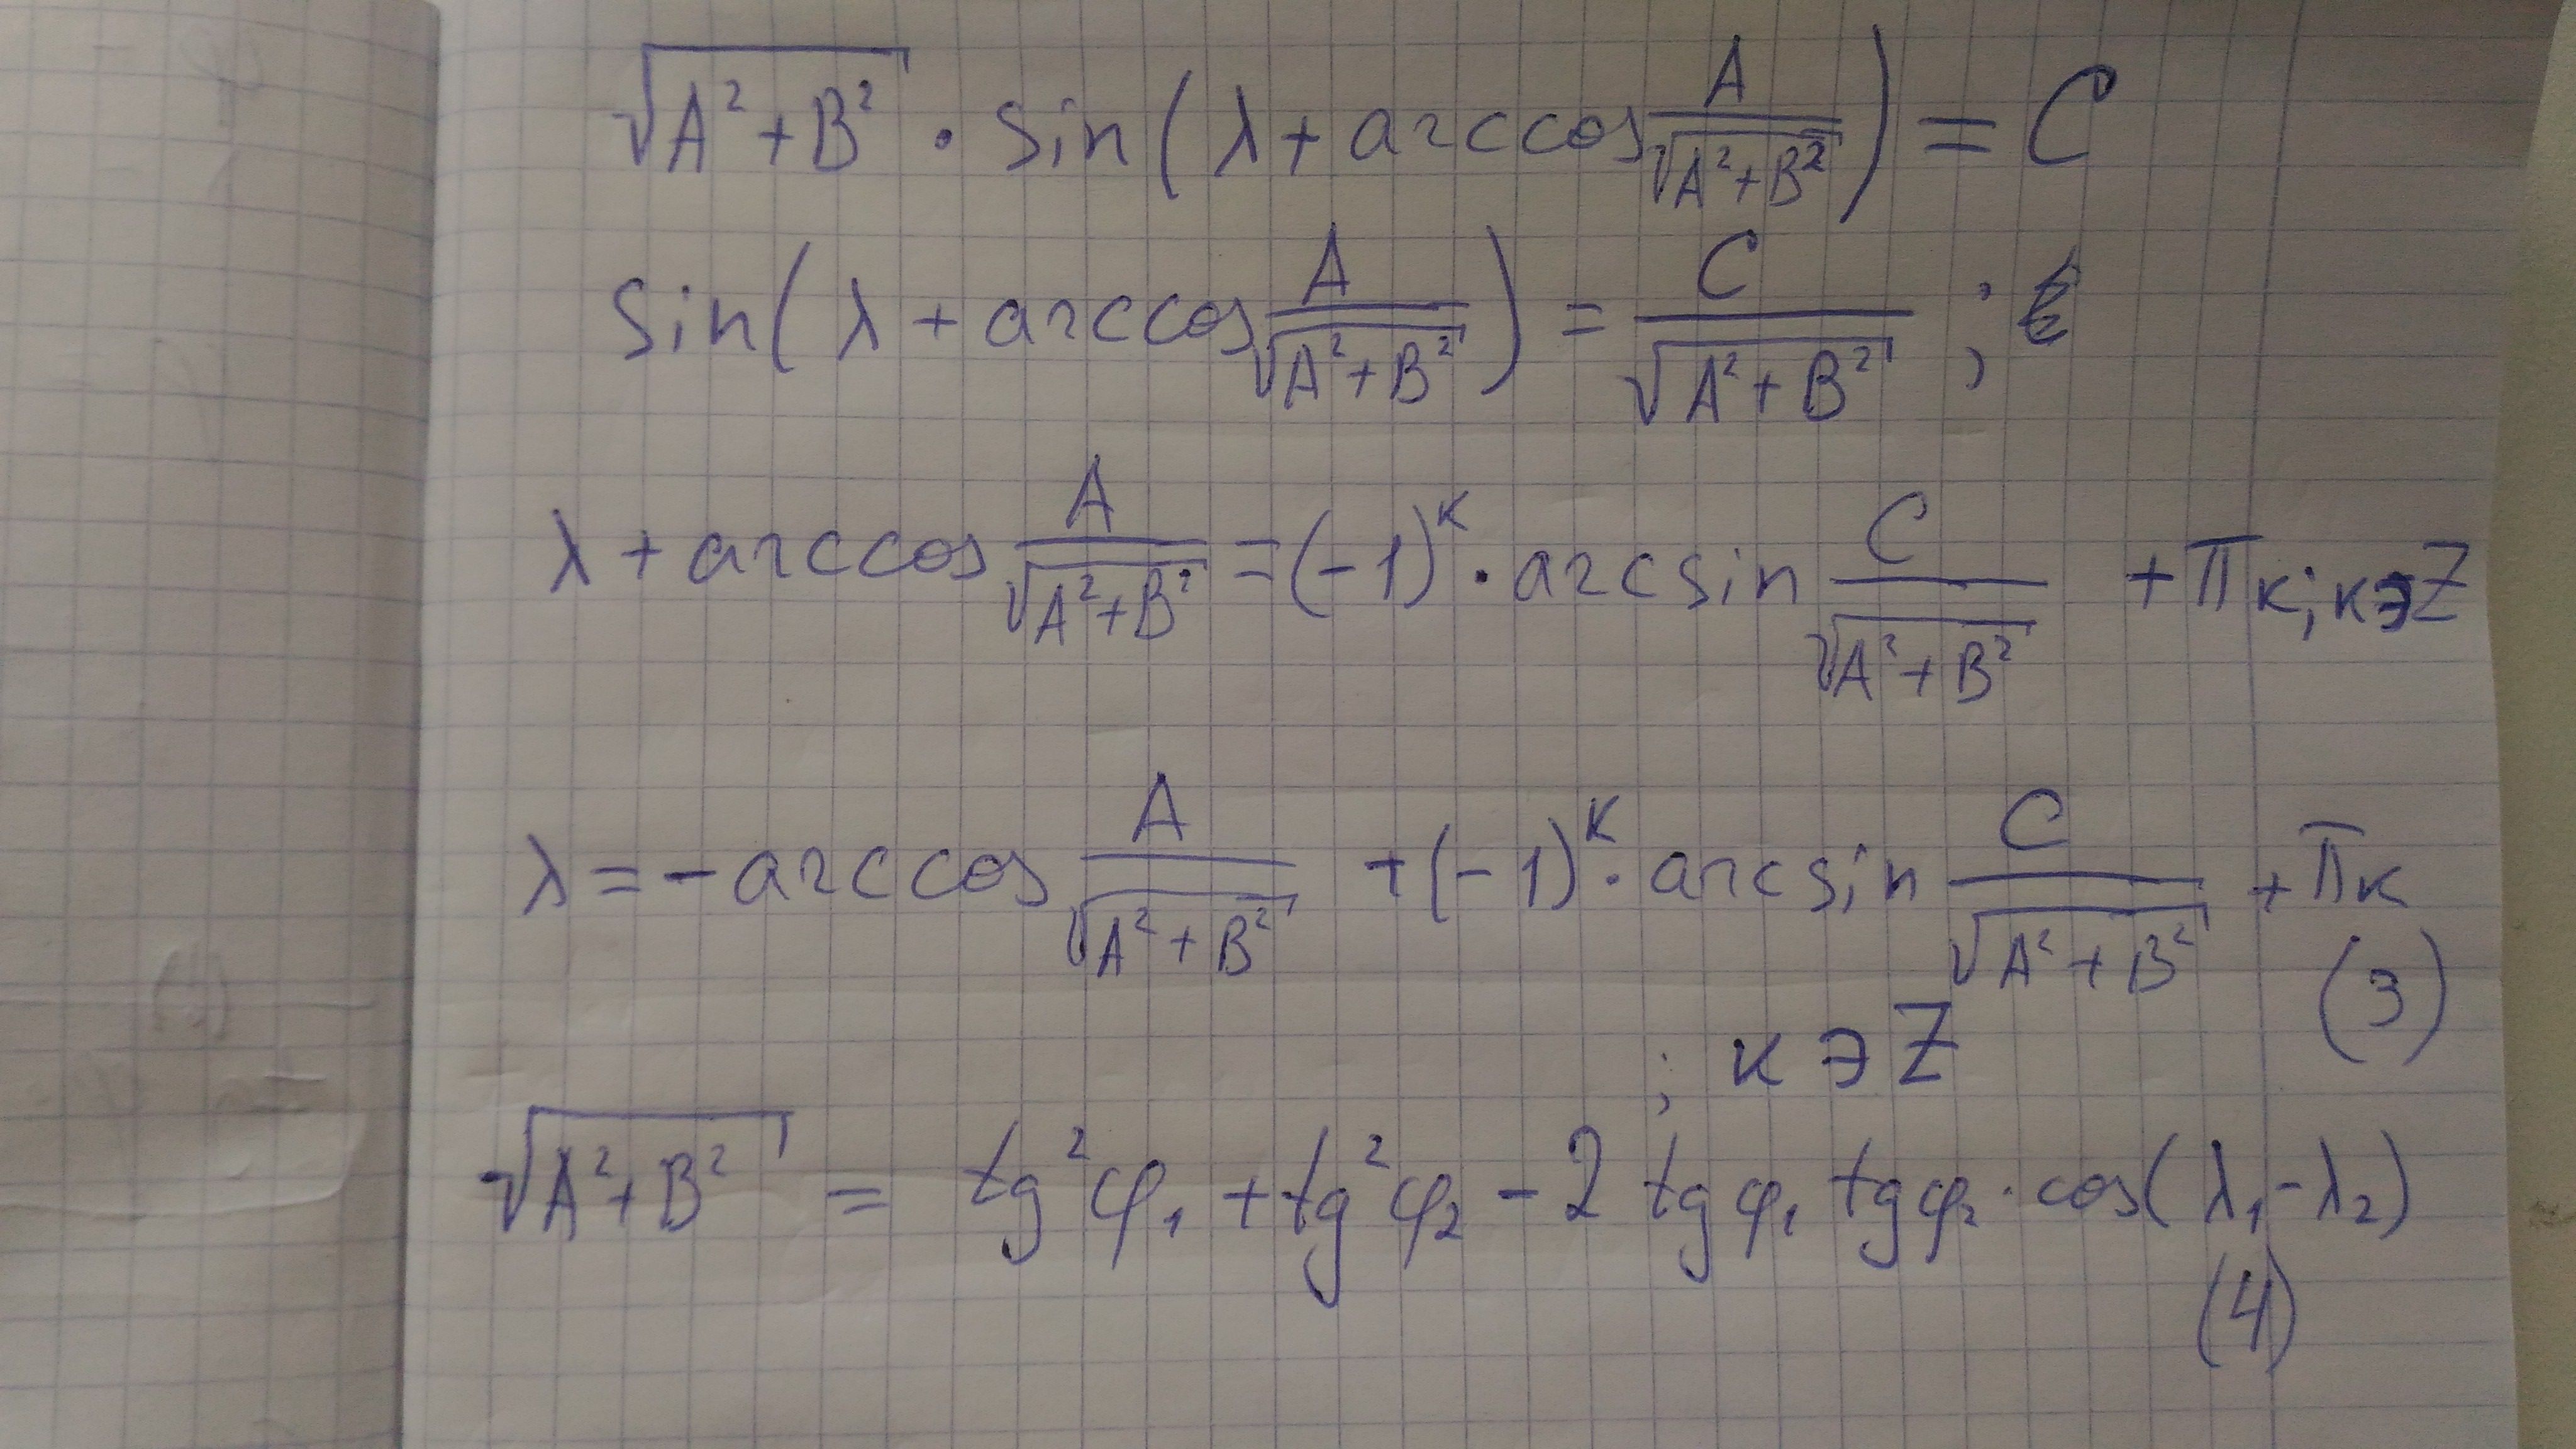 √(A²+B²) · sin(λ + arccos A/√(A²+B²)) = C
sin(λ + arccos A/√(A²+B²)) = C/√(A²+B²) ;
λ + arccos A/√(A²+B²) = (-1)ᵏ · arcsin C/√(A²+B²) + πк; к∍Z
λ = - arccos A/√(A²+B²) + (-1)ᵏ · arcsin C/√(A²+B²) + πк
(3)
; к ∍ Z
√(A²+B²) = tg²φ₁ + tg²φ₂ - 2 tgφ₁ tgφ₂ · cos(λ₁-λ₂)
(4)